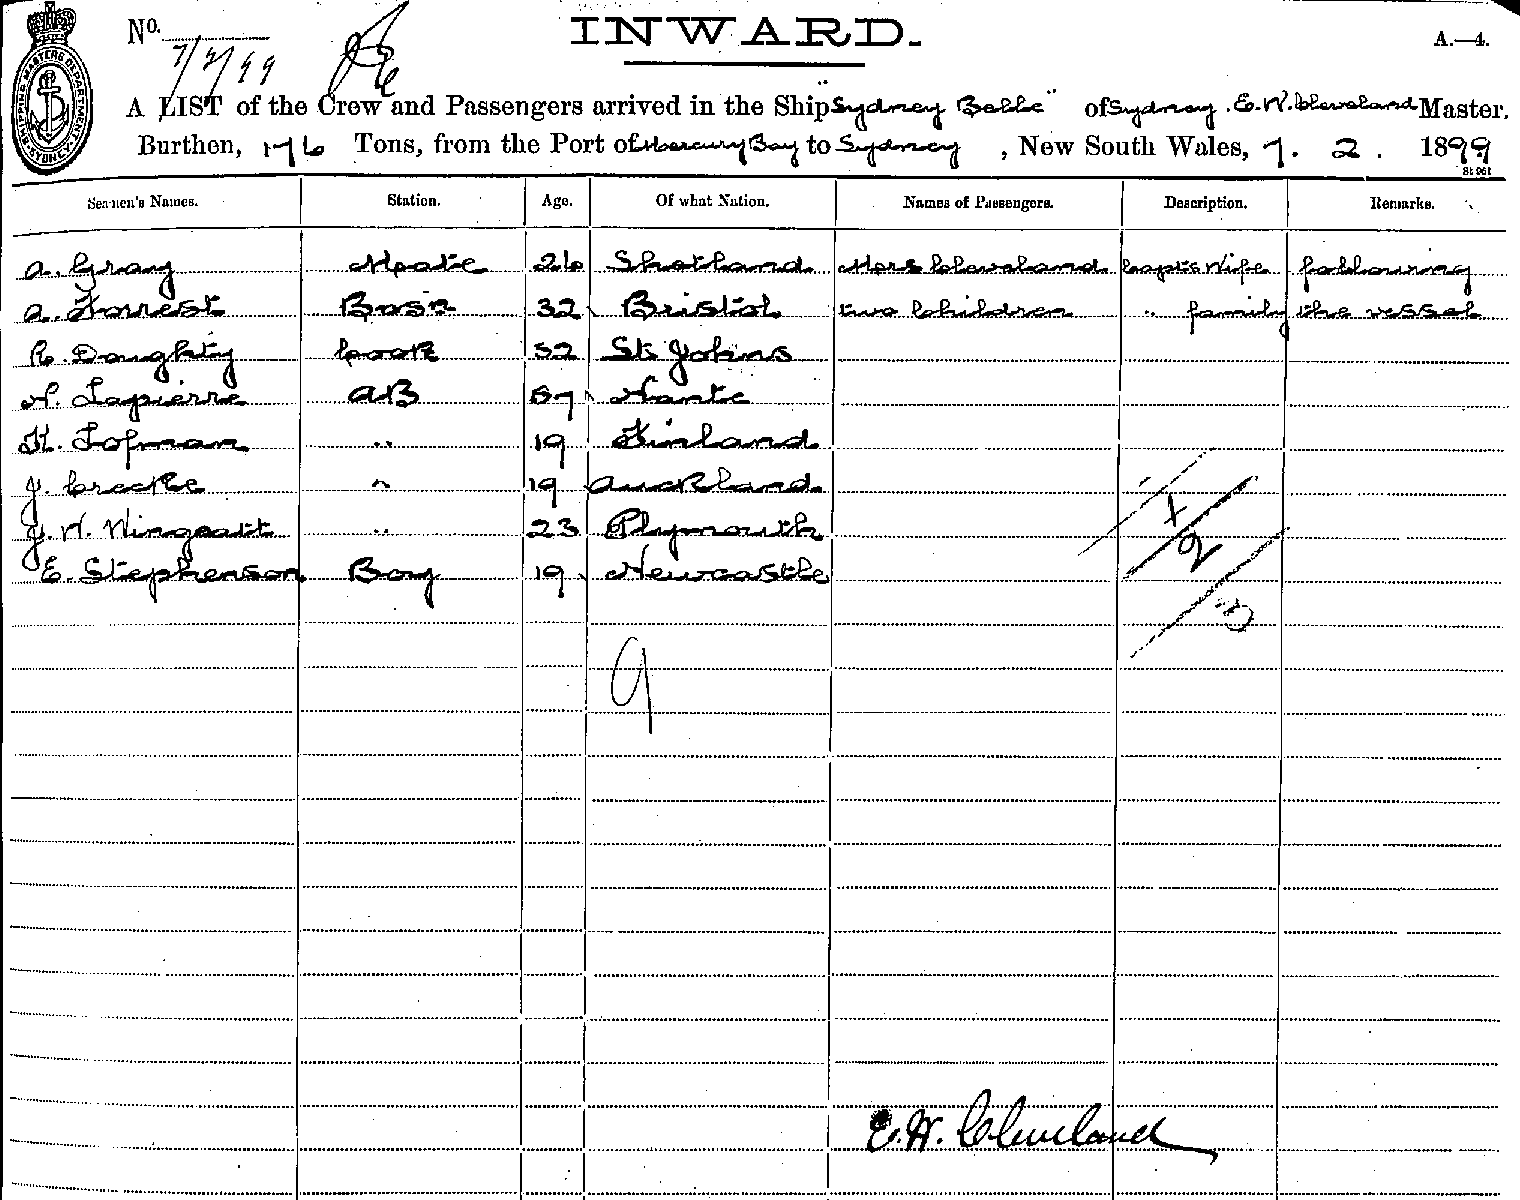 No.
INWARD.
A.—4.
7/2/99
A LIST of the Crew and Passengers arrived in the Ship "Sydney Belle" of Sydney. E. W. Cleveland Master.
Burthen, 176 Tons, from the Port of Mercury Bay to Sydney, New South Wales, 7. 2. 1899
Seamen's Names. Station. Age. Of what Nation. Names of Passengers. Description. Remarks.
A. Gray Mate 26 Shetland Mers Cleveland Capts Wife following
A. Forrest Bosn 32 Bristol two Children " family the vessel
R. Doughty Cook 52 St Johns
N. Lapierre AB 57 Nante
K. Lofman " 19 Finland
J. Creeke " 19 Auckland
J. W. Wingeatt " 23 Plymouth
E. Stephenson Boy 19 Newcastle
1
+
9
3
9
E. W. Cleveland
SHIPPING MASTERS DEPARTMENT SYDNEY